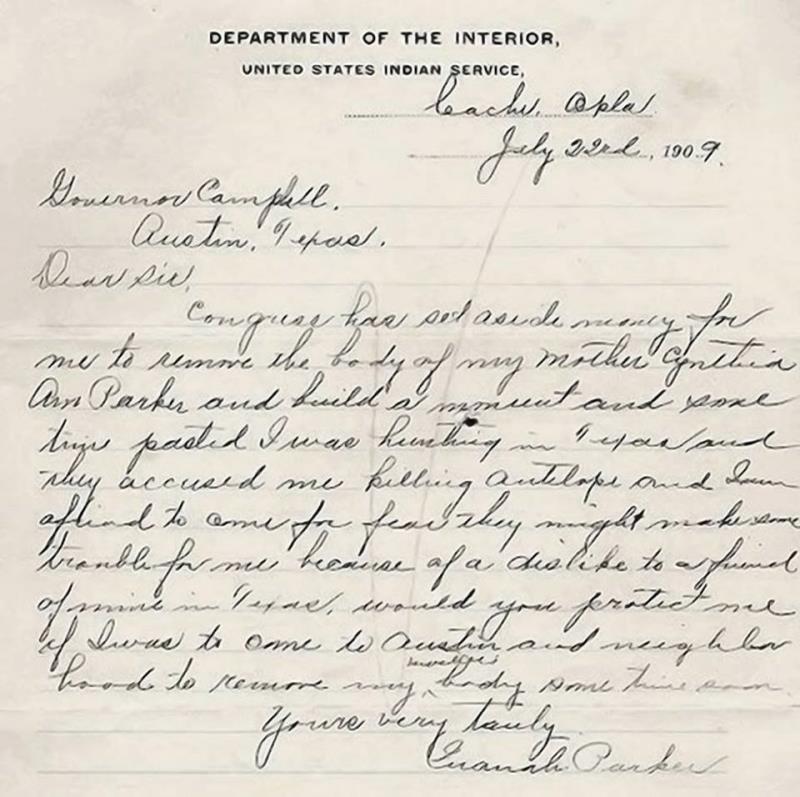 DEPARTMENT OF THE INTERIOR,
UNITED STATES INDIAN SERVICE,
Cache, Okla
July 22rd, 1909.
Governor Campbell.
Austin, Texas.
Dear Sir,
Congress has set aside money for
me to remove the body of my mother Cynthia
Ann Parker and build a monument and some
time pasted I was hunting in Texas and
they accused me killing antelope and I am
afraid to come for fear they might make some
trouble for me because of a dislike to a friend
of mine in Texas, would you protect me
if I was to come to Austin and neighbor
hood to remove my mother's body some time soon.
Yours very truly
Quanah Parker